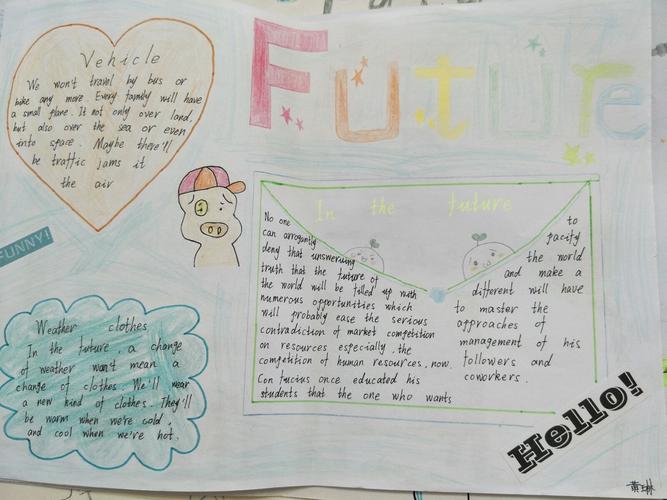 Future
Vehicle
We won't travel by bus or
bike any more. Every family will have
a small plane. It not only over land.
but also over the sea or even
into space. Maybe there'll
be traffic jams it
the air
FUNNY!
Weather clothes
In the future, a change
of weather won't mean a
change of clothes. We'll wear
a new kind of clothes. They'll
be warm when we're cold,
and cool when we're hot.
In the future
No one
can arrogantly
deny that unswerving
truth that the future of
the world will be filled up with
numerous opportunities which
will probably ease the serious
contradiction of market competition
on resources especially, the
competition of human resources, now.
Confucius once educated his
students that the one who wants
to
pacify
the world
and make a
different will have
to master the
approaches of
management of his
followers and
coworkers.
Hello!